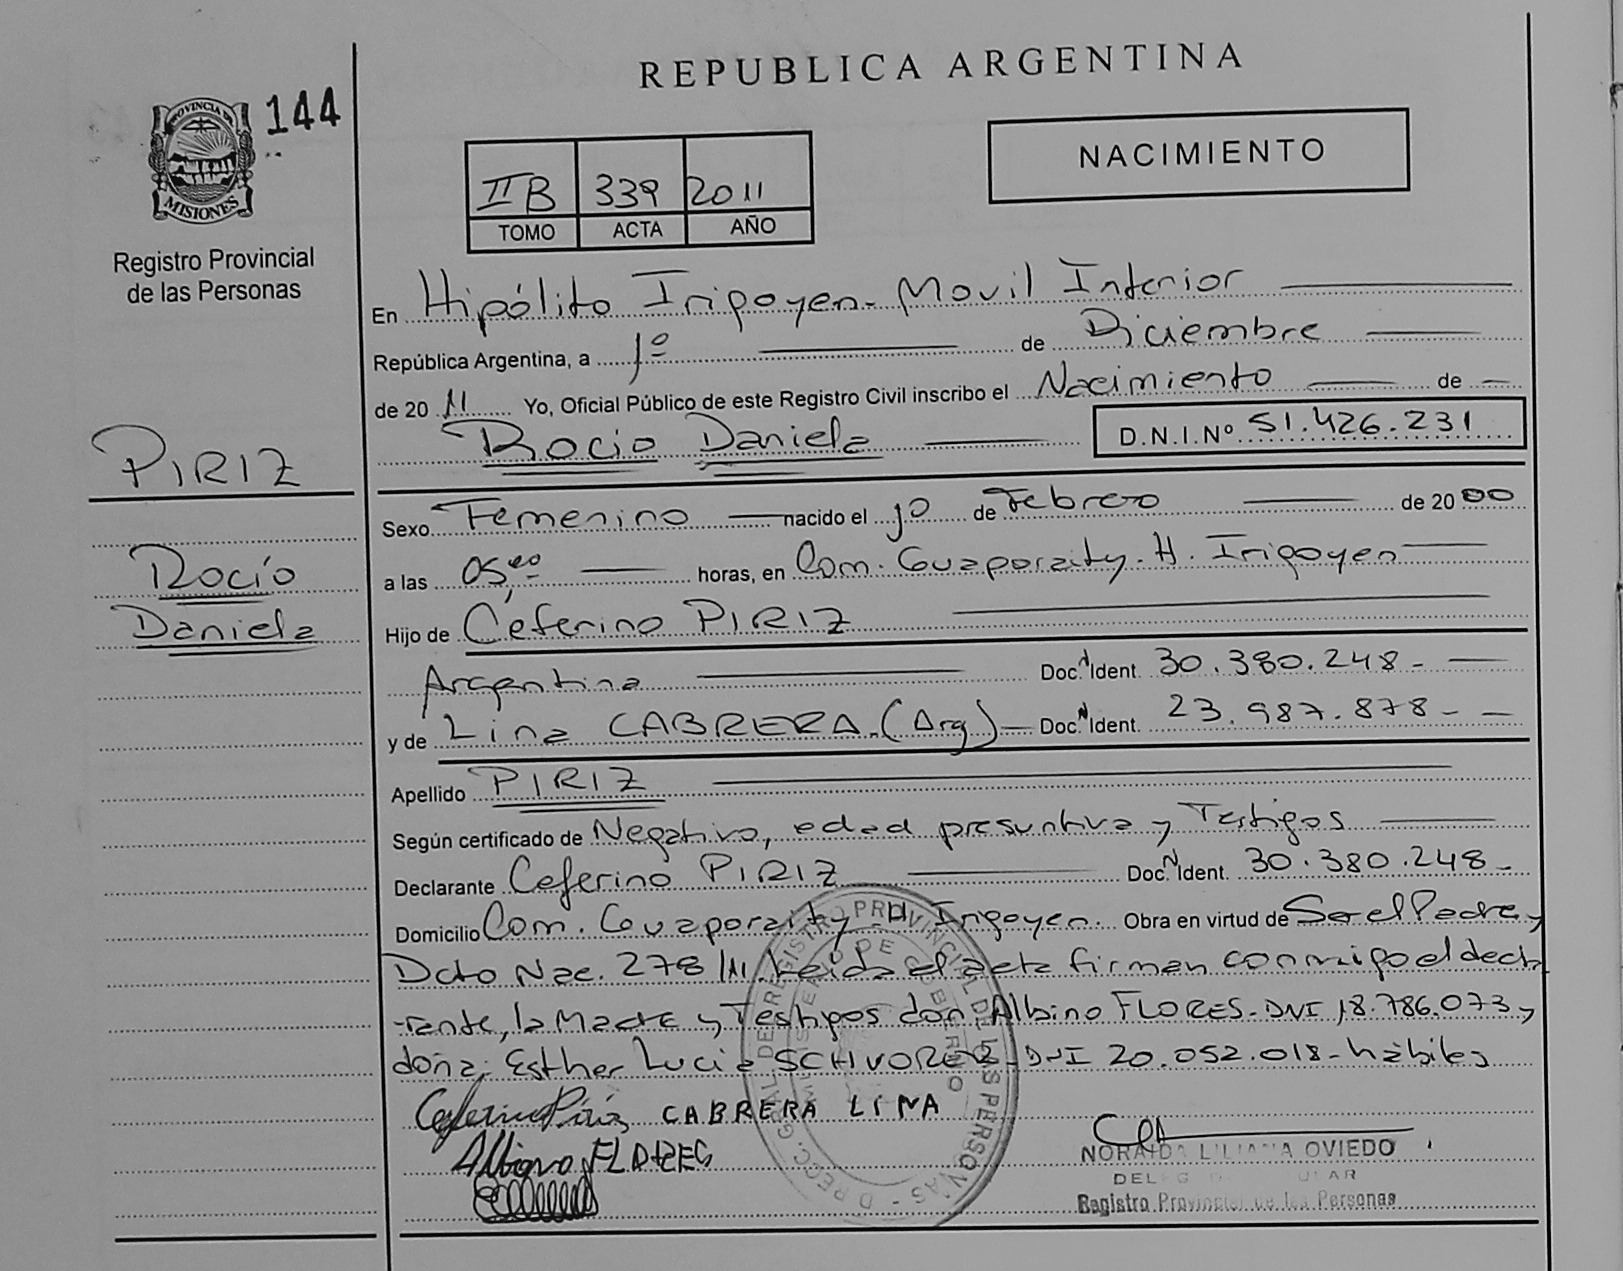 REPUBLICA ARGENTINA
PROVINCIA DE
MISIONES
144
Registro Provincial
de las Personas
II B 339 2011
TOMO ACTA AÑO
NACIMIENTO
En Hipólito Iripoyen - Movil Interior
República Argentina, a 1º de Diciembre
de 20 11 Yo, Oficial Público de este Registro Civil inscribo el Nacimiento de
Rocio Daniela D.N.I.Nº 51.426.231
PIRIZ
Rocío
Daniela
Sexo Femenino nacido el 1º de Febrero de 20 00
a las 05,00 horas, en Com. Guaporaity - H. Iripoyen
Hijo de Ceferino PIRIZ
Argentina Doc. Ident. 30.380.248 -
y de Lina CABRERA (Arg) Doc. Ident. 23.987.878 -
Apellido PIRIZ
Según certificado de Negativo, edad presuntiva y Testigos
Declarante Ceferino PIRIZ Doc. Ident. 30.380.248 -
Domicilio Com. Guaporaity - H. Irigoyen. Obra en virtud de Ser el Padre y
Dcto Nac. 278/11. Leida el acta firman conmigo el decla
-rante, la Madre y Testigos don Albino FLORES - DNI 18.786.073 y
doña: Esther Lucia SCHVOREZ - DNI 20.052.018 - hábiles
Ceferino Piriz CABRERA LINA
Albino FLORES
NORAIDA LILIANA OVIEDO
Registro Provincial de las Personas
DIRECC. GRAL. DE REGISTRO PROVINCIAL DE LAS PERSONAS
MINISTERIO DE GOBIERNO